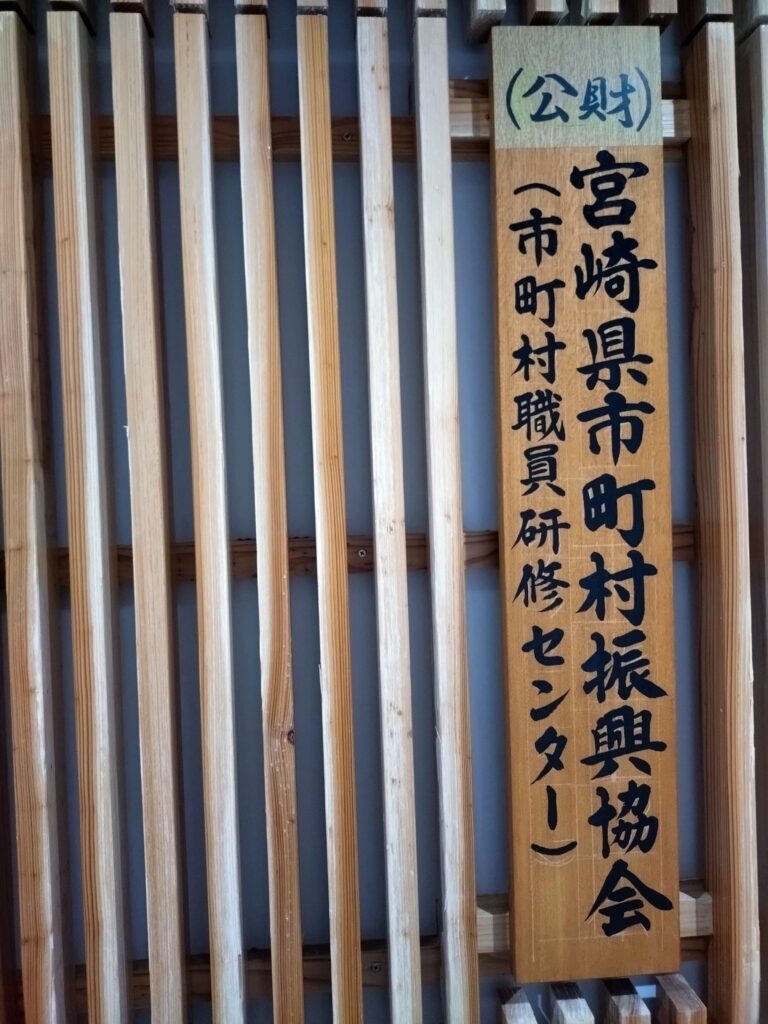 (公財)
宮崎県市町村振興協会
(市町村職員研修センター)